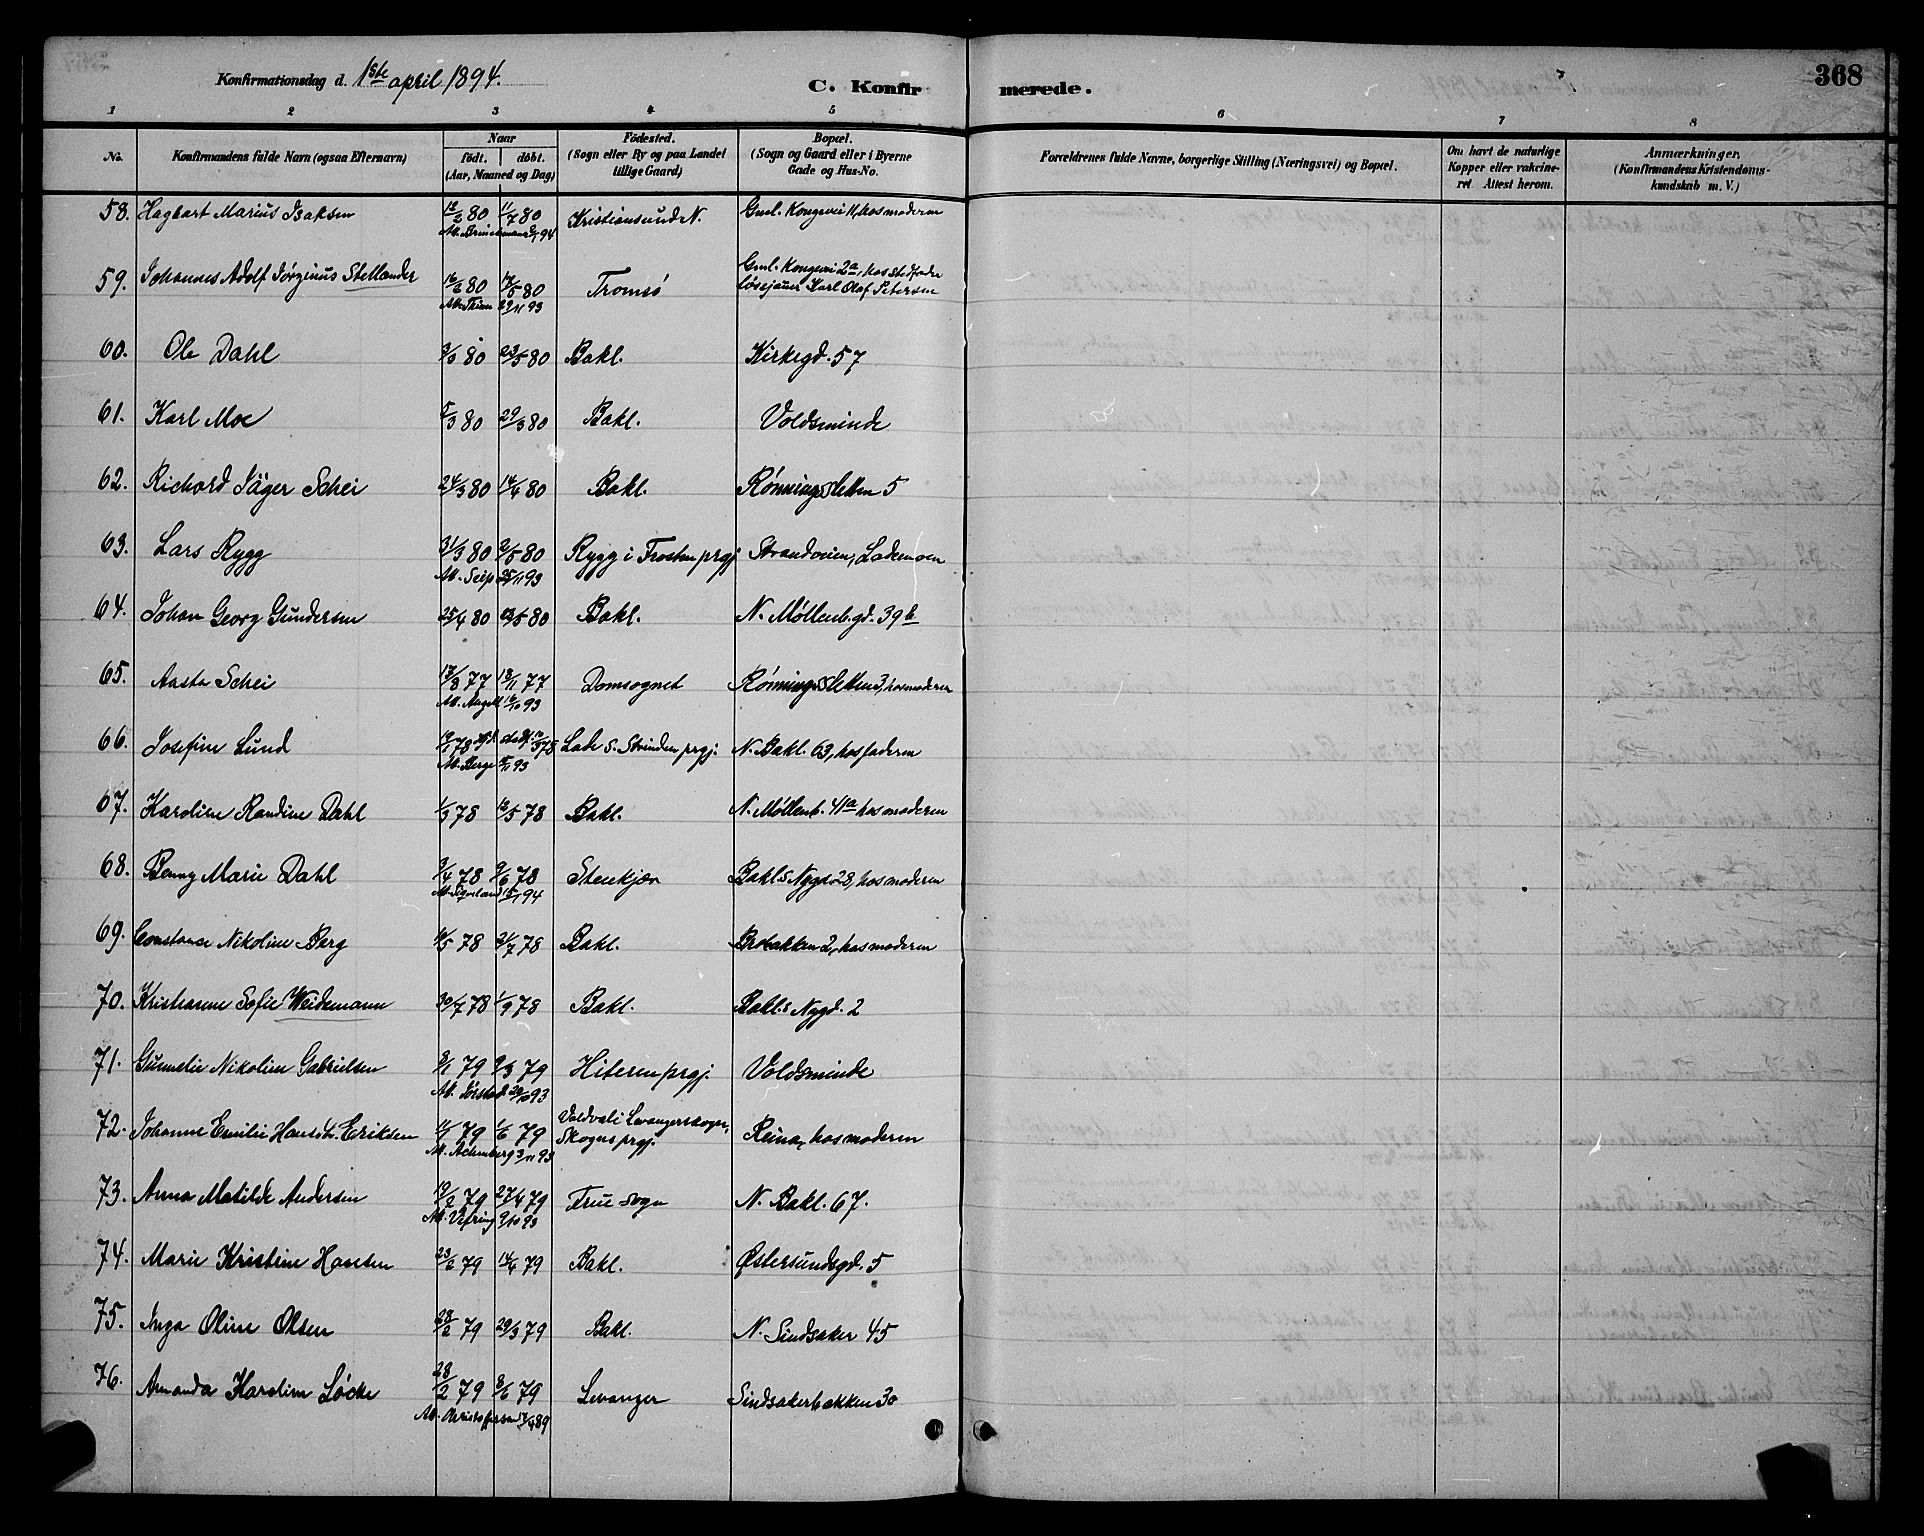 Konfirmationsdag d. 1ste april 1894.
C. Konfir merede.
368
1 2 3 4 5 6 7 8
No. Konfirmandens fulde Navn (ogsaa Efternavn) Naar født. døbt. (Aar, Maaned og Dag) Fødested. (Sogn eller By og paa Landet tillige Gaard) Bopæl. (Sogn og Gaard eller i Byerne Gade og Hus-No. Forældrenes fulde Navne, borgerlige Stilling (Næringsvei) og Bopæl. Om havt de naturlige Kopper eller vakcineret. Attest herom. Anmærkninger. (Konfirmandens Kristendomskundskab m. V.)
58. Hagbart Marius Isaksen 80 11/7 80 Kristiansund N. Gml. Kongevei 11, hos moderen
59. Johannes Adolf Jørginus Stellander 80 80 Tromsø Gml. Kongevei 2a, hos stedfader
løsejaner Karl Olaf Petersen
29/11 93
60. Ole Dahl 80 23/5 80 Bakl. Kirkegd. 57
61. Karl Moe 5/3 80 29/3 80 Bakl. Voldsminde
62. Richard Jäger Schei 24/3 80 14/4 80 Bakl. Rønningsletten 5
63. Lars Rygg 31/3 80 2/5 80 Rygg i Frosten prgj Strandveien, Lademoen
At. Seip 25/11 93
64. Johan Georg Gundersen 25/4 80 80 Bakl. N. Møllenb.gd. 39b
65. Aasta Schei 17/8 77 18/11 77 Domsognet Rønningsletten 3, hos moderen
At. Angell 16/10 93
66. Josefine Lund 78 78 Lade S. Strinden prgj. N. Bakl. 63, hos faderen
At. Berge 93
67. Karoline Randine Dahl 1/3 78 12/5 78 Bakl. N. Møllenb. 41a hos moderen
68. Benny Marie Dahl 3/4 78 9/6 78 Stenkjær Bakl.s Nygd 28, hos moderen
94
69. Constance Nikoline Berg 78 21/7 78 Bakl. Brobakken 2, hos moderen
70. Kristianne Sofie Weidemann 30/7 78 1/9 78 Bakl. Bakl.s Nygd. 2
71. Gunnelie Nikoline Gabrielsen 8/1 79 9/3 79 Hiteren prgj. Voldsminde
At. Jørstad 20/10 93
72. Johanne Emilie Hansdtr. Eriksen 79 1/6 79 Levangerskogn, Skogns prgj. Reina, hos moderen
3/11 93
73. Anna Matilde Andersen 19/2 79 27/4 79 Frue sogn N. Bakl. 67.
At. Vefring 9/10 93
74. Marie Kristine Hansen 23/2 79 14/4 79 Bakl. Østersundsgd. 5
75. Inga Oline Olsen 28/2 79 29/3 79 Bakl. N. Sindsaker 45
76. Amanda Karoline Løcke 28/2 79 8/6 79 Levanger Sindsakerbakken 30
At. Christoffersen 89